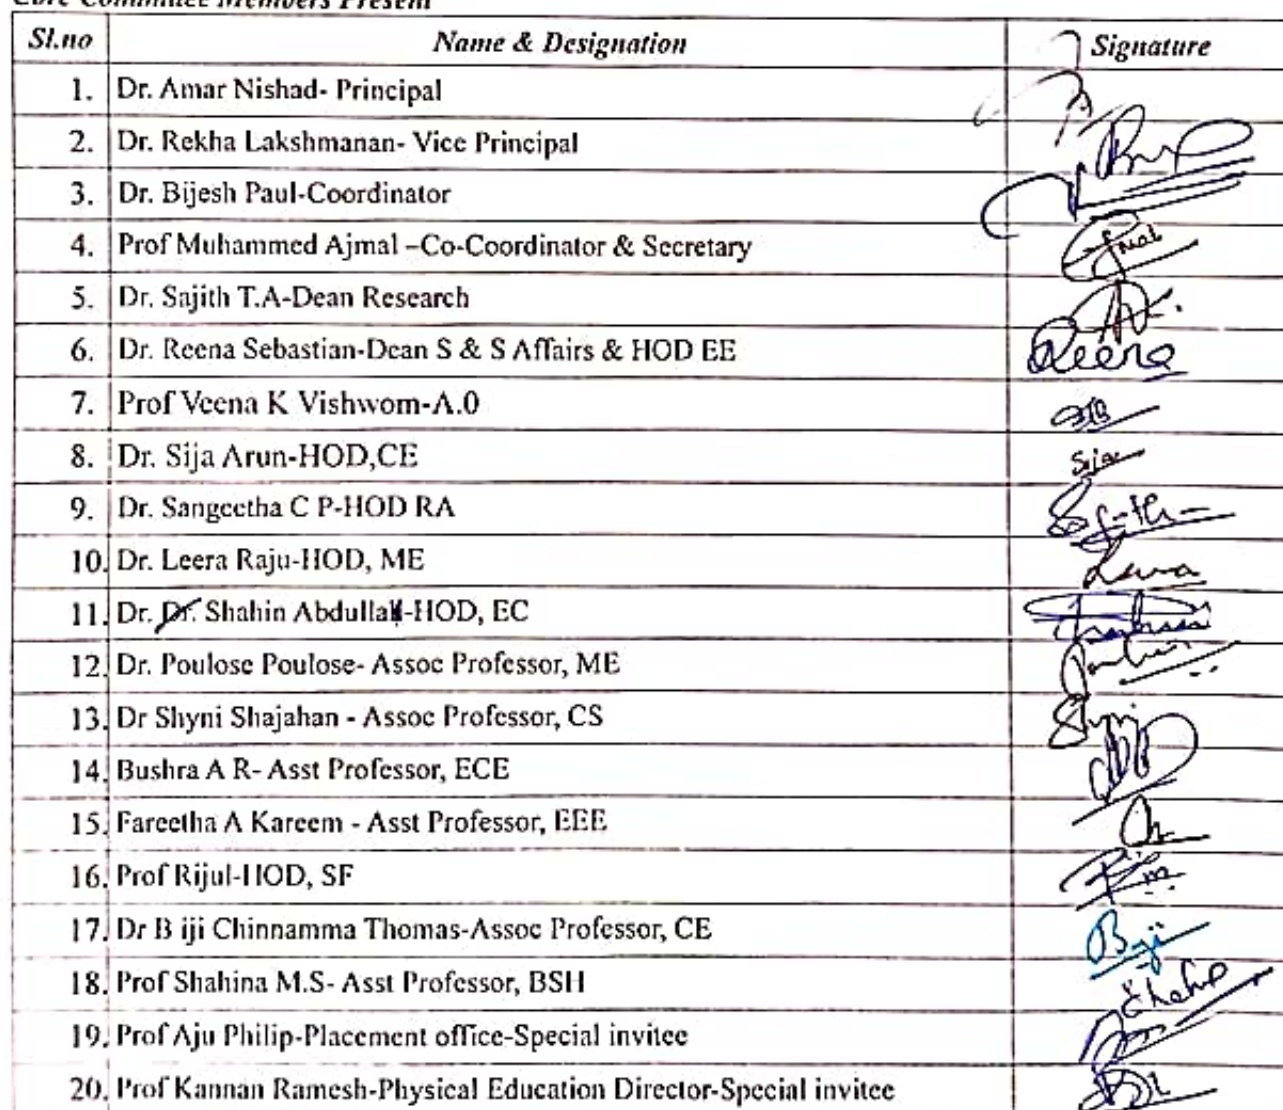 Core Committee Members Present
Sl.no Name & Designation Signature
1. Dr. Amar Nishad- Principal
2. Dr. Rekha Lakshmanan- Vice Principal
3. Dr. Bijesh Paul-Coordinator
4. Prof Muhammed Ajmal –Co-Coordinator & Secretary
5. Dr. Sajith T.A-Dean Research
6. Dr. Reena Sebastian-Dean S & S Affairs & HOD EE Reena
7. Prof Veena K Vishwom-A.0
8. Dr. Sija Arun-HOD,CE Sija
9. Dr. Sangeetha C P-HOD RA
10. Dr. Leera Raju-HOD, ME
11. Dr. Dr. Shahin Abdullak-HOD, EC
12. Dr. Poulose Poulose- Assoc Professor, ME
13. Dr Shyni Shajahan - Assoc Professor, CS
14. Bushra A R- Asst Professor, ECE
15. Fareetha A Kareem - Asst Professor, EEE
16. Prof Rijul-HOD, SF
17. Dr B iji Chinnamma Thomas-Assoc Professor, CE
18. Prof Shahina M.S- Asst Professor, BSH
19. Prof Aju Philip-Placement office-Special invitee
20. Prof Kannan Ramesh-Physical Education Director-Special invitee